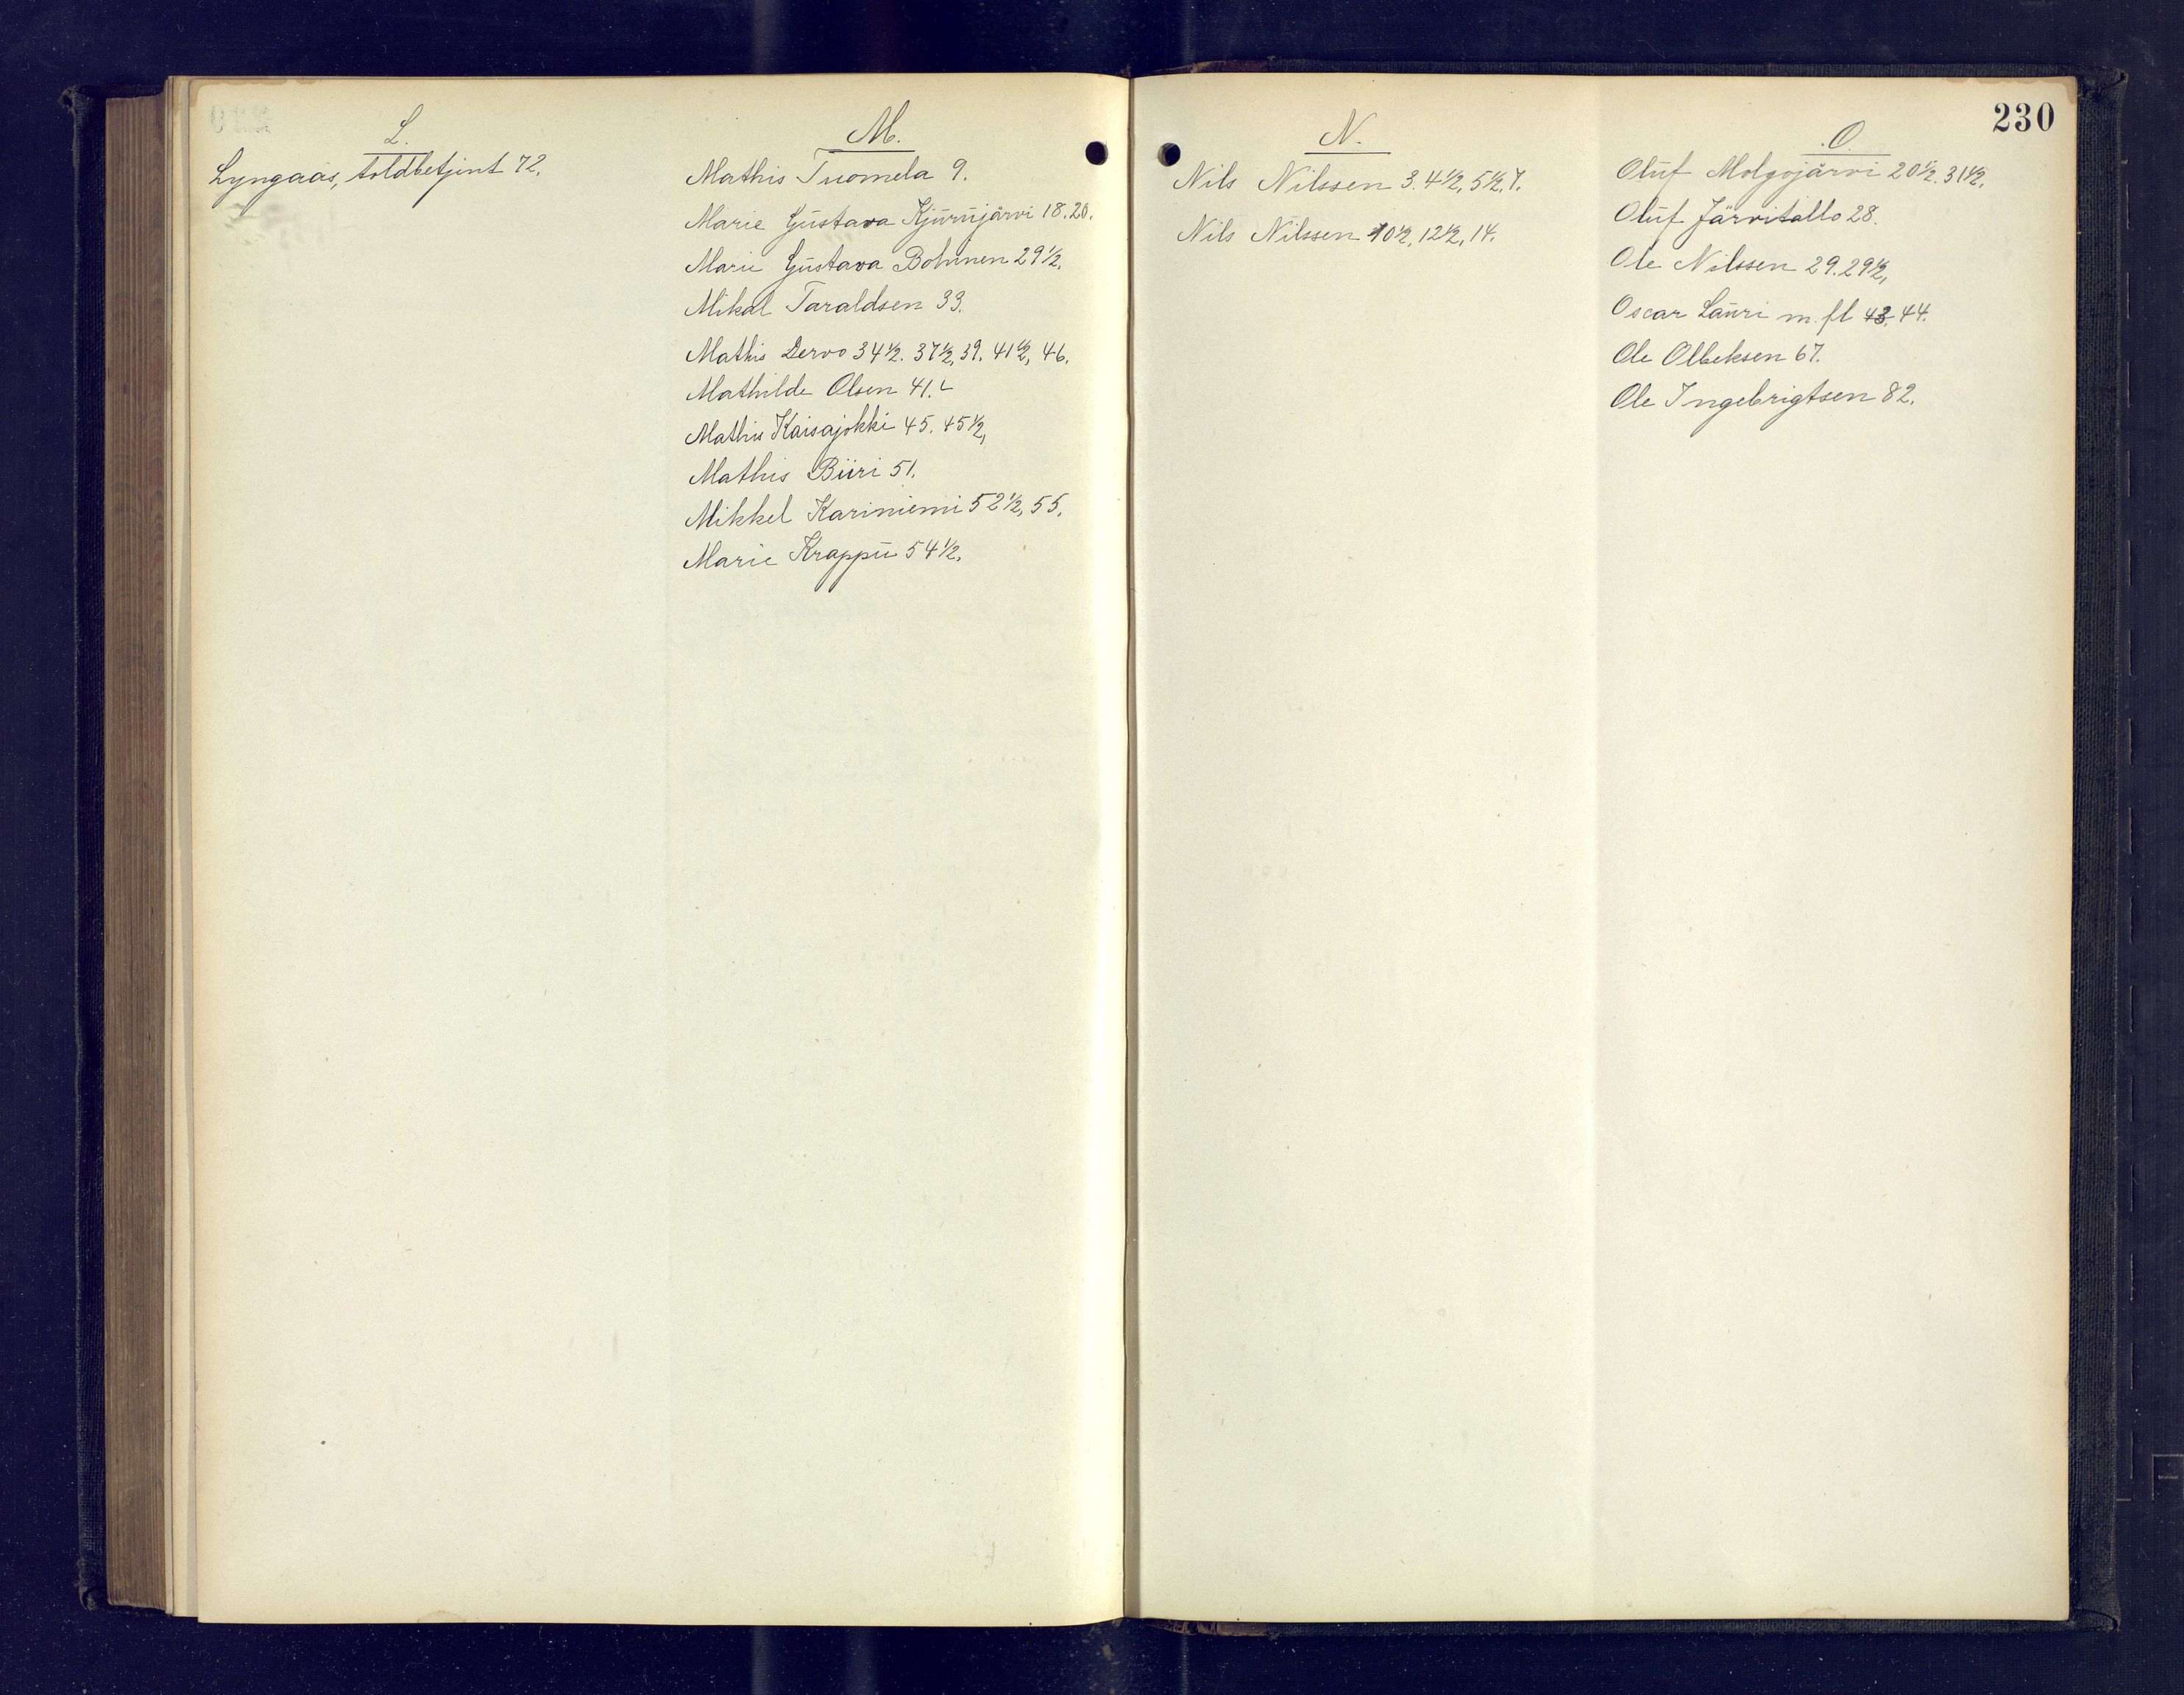 L.
Lyngaas, toldbetjent 72.
M.
Mathis Tuomela 9.
Marie Gustava Kjurujärvi 18. 20.
Marie Gustava Bohinen 29½.
Mikal Taraldsen 33.
Mathis Dervo 34½. 37½, 39. 41½, 46.
Mathilde Olsen 41.
Mathis Kaisajokki 45. 45½,
Mathis Biiri 51.
Mikkel Kariniemi 52½, 55.
Marie Krappu 54½.
N.
Nils Nilssen 3. 4½, 5½, 7.
Nils Nilssen 10½, 12½, 14.
230
O.
Oluf Molgojärvi 20½. 31½.
Oluf Järvitallo 28.
Ole Nilssen 29. 29½,
Oscar Lauri m. fl 43. 44.
Ole Olbeksen 67.
Ole Ingebrigtsen 82.